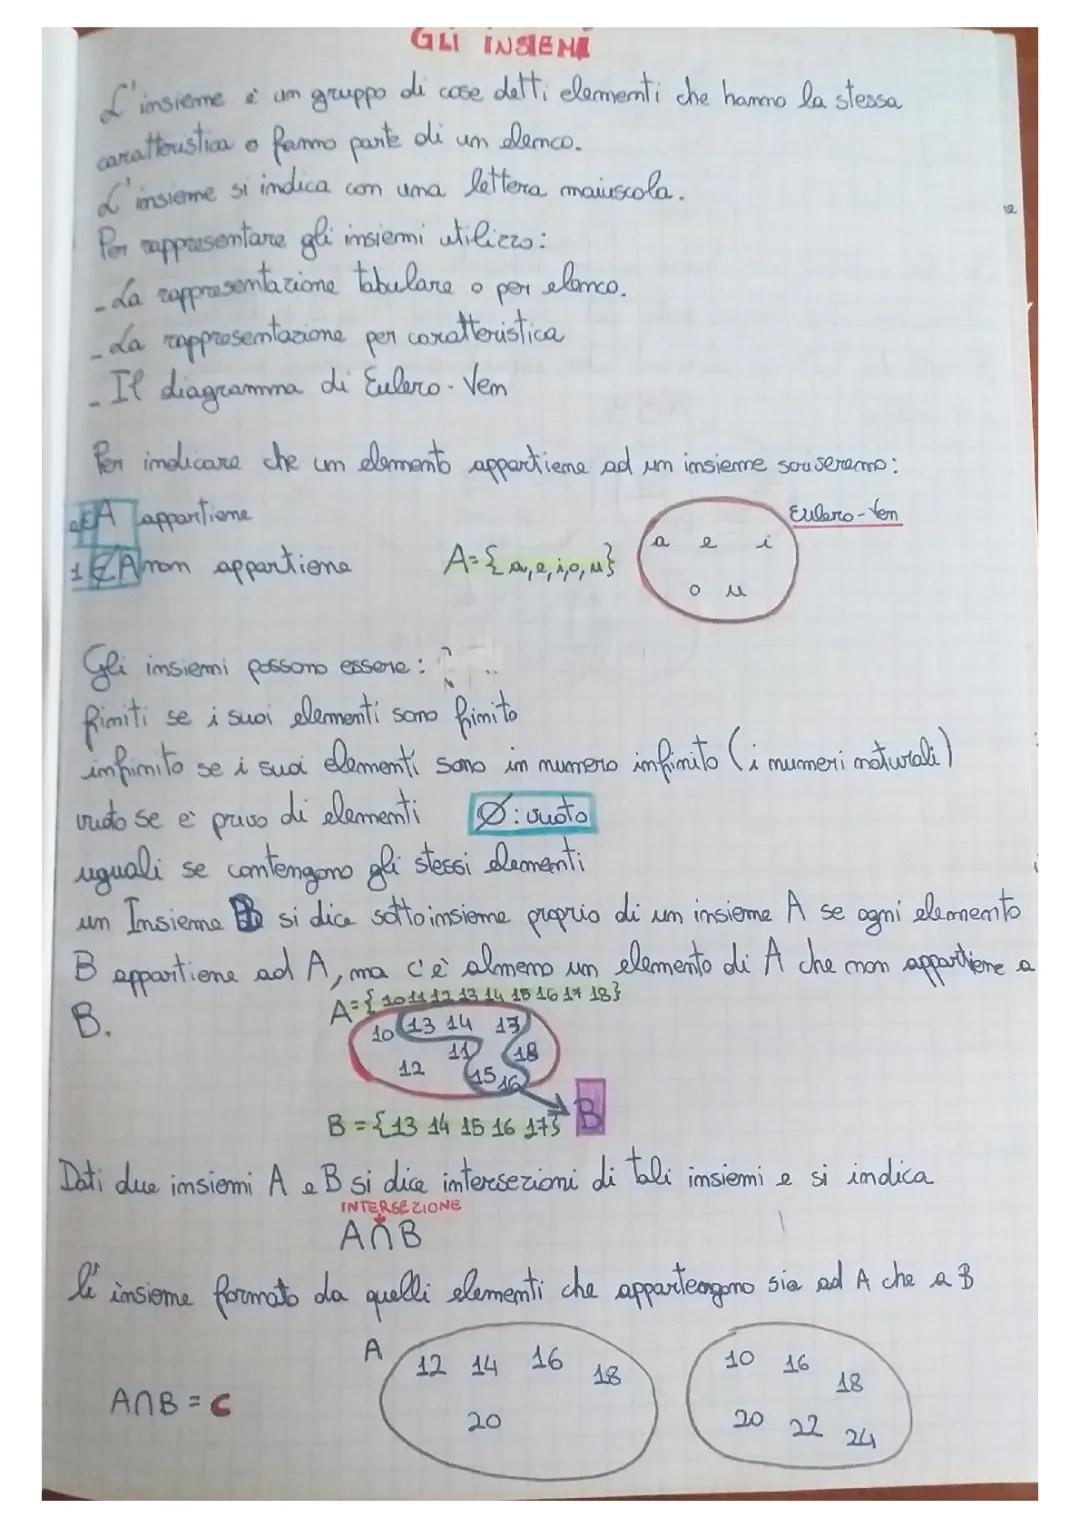 GLI INSIEMI
L'insieme è un gruppo di cose detti elementi che hanno la stessa
caratteristica o fanno parte di un elenco.
L'insieme si indica con una lettera maiuscola.
12
Per rappresentare gli insiemi utilizzo:
- La rappresentazione tabulare o per elenco.
- La rappresentazione per caratteristica
- Il diagramma di Eulero-Ven
Per indicare che un elemento appartiene ad un insieme scriveremo:
a∈A appartiene
Eulero-Ven
1∉A non appartiene
A={a,e,i,o,u}
a e i
o u
Gli insiemi possono essere:
finiti se i suoi elementi sono finito
infinito se i suoi elementi sono in numero infinito (i numeri naturali)
vuoto se è privo di elementi Ø: vuoto
uguali se contengono gli stessi elementi
un Insieme B si dice sottoinsieme proprio di un insieme A se ogni elemento
B appartiene ad A, ma c'è almeno un elemento di A che non appartiene a
B.
A={10 11 12 13 14 15 16 17 18}
10 13 14 17
12 11 18
15 16
B
B={13 14 15 16 17}
Dati due insiemi A e B si dice intersezioni di tali insiemi e si indica
INTERSEZIONE
A∩B
l'insieme formato da quelli elementi che appartengono sia ad A che a B
A
12 14 16 18
20
10 16 18
20 22 24
A∩B = C